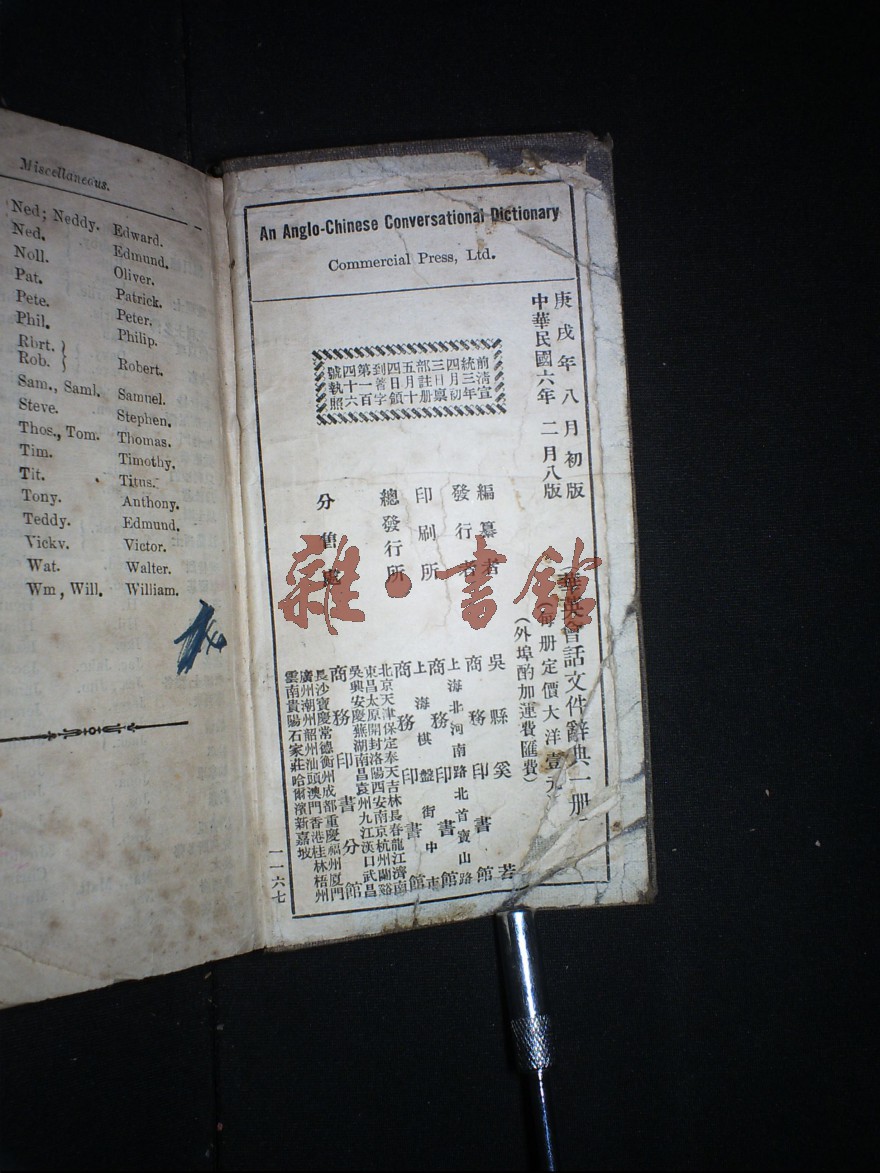 Miscellaneous.
Ned; Neddy. Edward.
Ned. Edmund.
Noll. Oliver.
Pat. Patrick.
Pete. Peter.
Phil. Philip.
Rbrt.
Rob. Robert.
Sam., Saml. Samuel.
Steve. Stephen.
Thos., Tom. Thomas.
Tim. Timothy.
Tit. Titus.
Tony. Anthony.
Teddy. Edmund.
Vicky. Victor.
Wat. Walter.
Wm, Will. William.
An Anglo-Chinese Conversational Dictionary
Commercial Press, Ltd.
庚戌年八月初版
中華民國六年二月八版
前清宣
統三年
四月初
三日稟
部註册
五月十
四日領
到著字
第一百
四十六
號執照
(華英會話文件辭典一册)
每册定價大洋壹元
(外埠酌加運費匯費)
編纂者 吳縣奚若
發行者 商務印書館
印刷所 上海北河南路北首寶山路 商務印書館
總發行所 上海棋盤街中市 商務印書館
分售處
北京天津保定奉天吉林長春龍江濟南
東昌太原開封洛陽西安南京杭州蘭谿
吳興安慶蕪湖南昌袁州九江漢口武昌
商務印書分館
長沙寶慶常德衡州成都重慶福州廈門
廣州潮州韶州汕頭澳門香港桂林梧州
雲南貴陽石家莊哈爾濱新嘉坡
一一六七
雜·書館